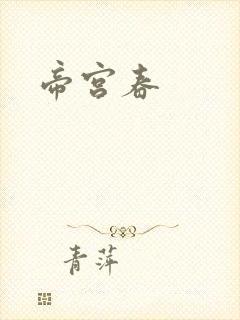 帝宫春
青萍